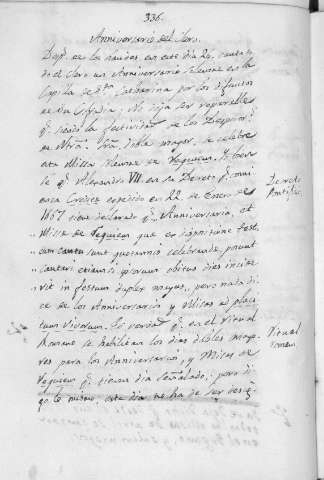 336.
Anniversario del Clero.
Desp.s de los havidos en este dia 24, canta to
do el Clero un Anniversario solemne en la
Capilla de S.ta Catharina por los difuntos
de su Cofadia; No deja ser reparable
q.e siendo la festividad de los Desposor.s
de Ntra. Sra. doble mayor, se celebre
esta Missa solemne de Requiem. Y tien
le q.e Alexandro VII. en su Decret. q.e
esca Credita expedido en 22 de Enero de
1667 tiene declarado q.e Anniversaria, et
Missæ de Requiem quæ ex dispositione Test.
cum cantu sunt quotannis celebrandæ, possunt
cantari etiamsi ipsorum obitus dies incide
rit in festum duplex majus, pero nada di
ce de los Anniversarios y Misas ad placi
tum Vivorum. Es verdad q.e en el Ritual
Romano se habilitan los dias dobles mayo
res para los Anniversarios, y Misas de
Requiem q.e tienen dia señalado; pero di
go lo mismo: este dia no ha de ser desig
Decreto
Pontifi.
Ritual
Roman.